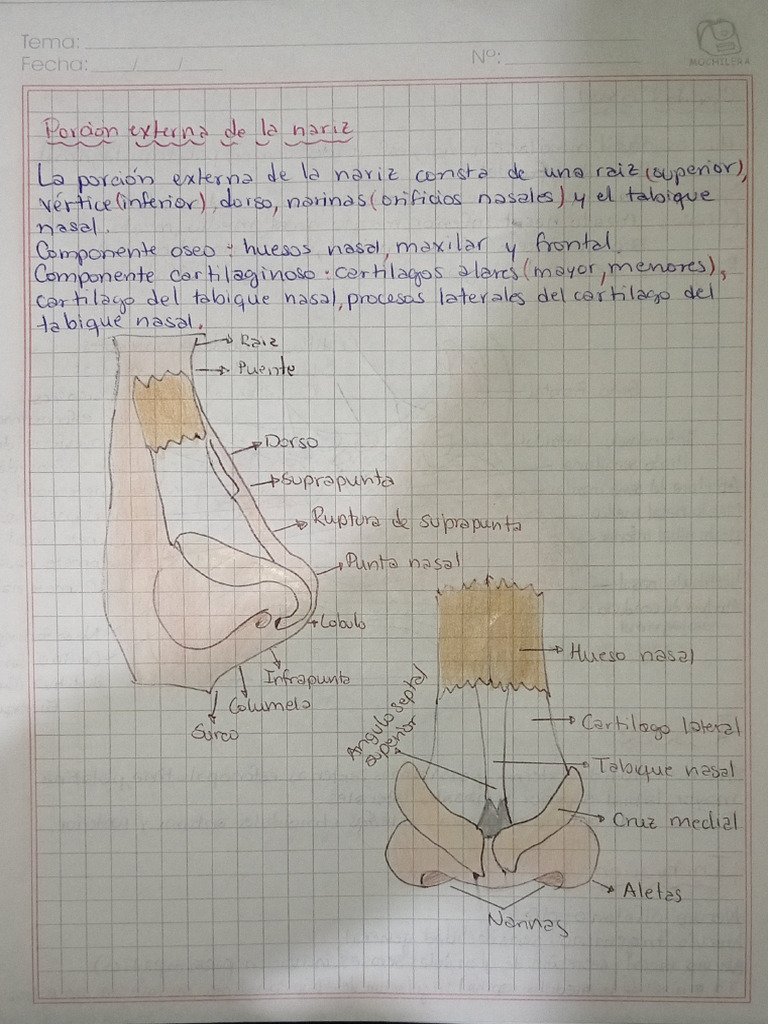 Tema:
Fecha: / /
Nº:
MOCHILERA
Porcion externa de la nariz
La porción externa de la nariz consta de una raiz (superior),
vértice (inferior), dorso, narinas (orificios nasales) y el tabique
nasal.
Componente oseo: huesos nasal, maxilar y frontal.
Componente cartilaginoso: cartilagos alares (mayor, menores),
cartilago del tabique nasal, procesos laterales del cartilago del
tabique nasal.
Raiz
Puente
Dorso
Suprapunta
Ruptura de suprapunta
Punta nasal
Lobulo
Infrapunta
Columela
Surco
Hueso nasal
Angulo septal
superior
Cartilago lateral
Tabique nasal
Cruz medial
Aletas
Narinas